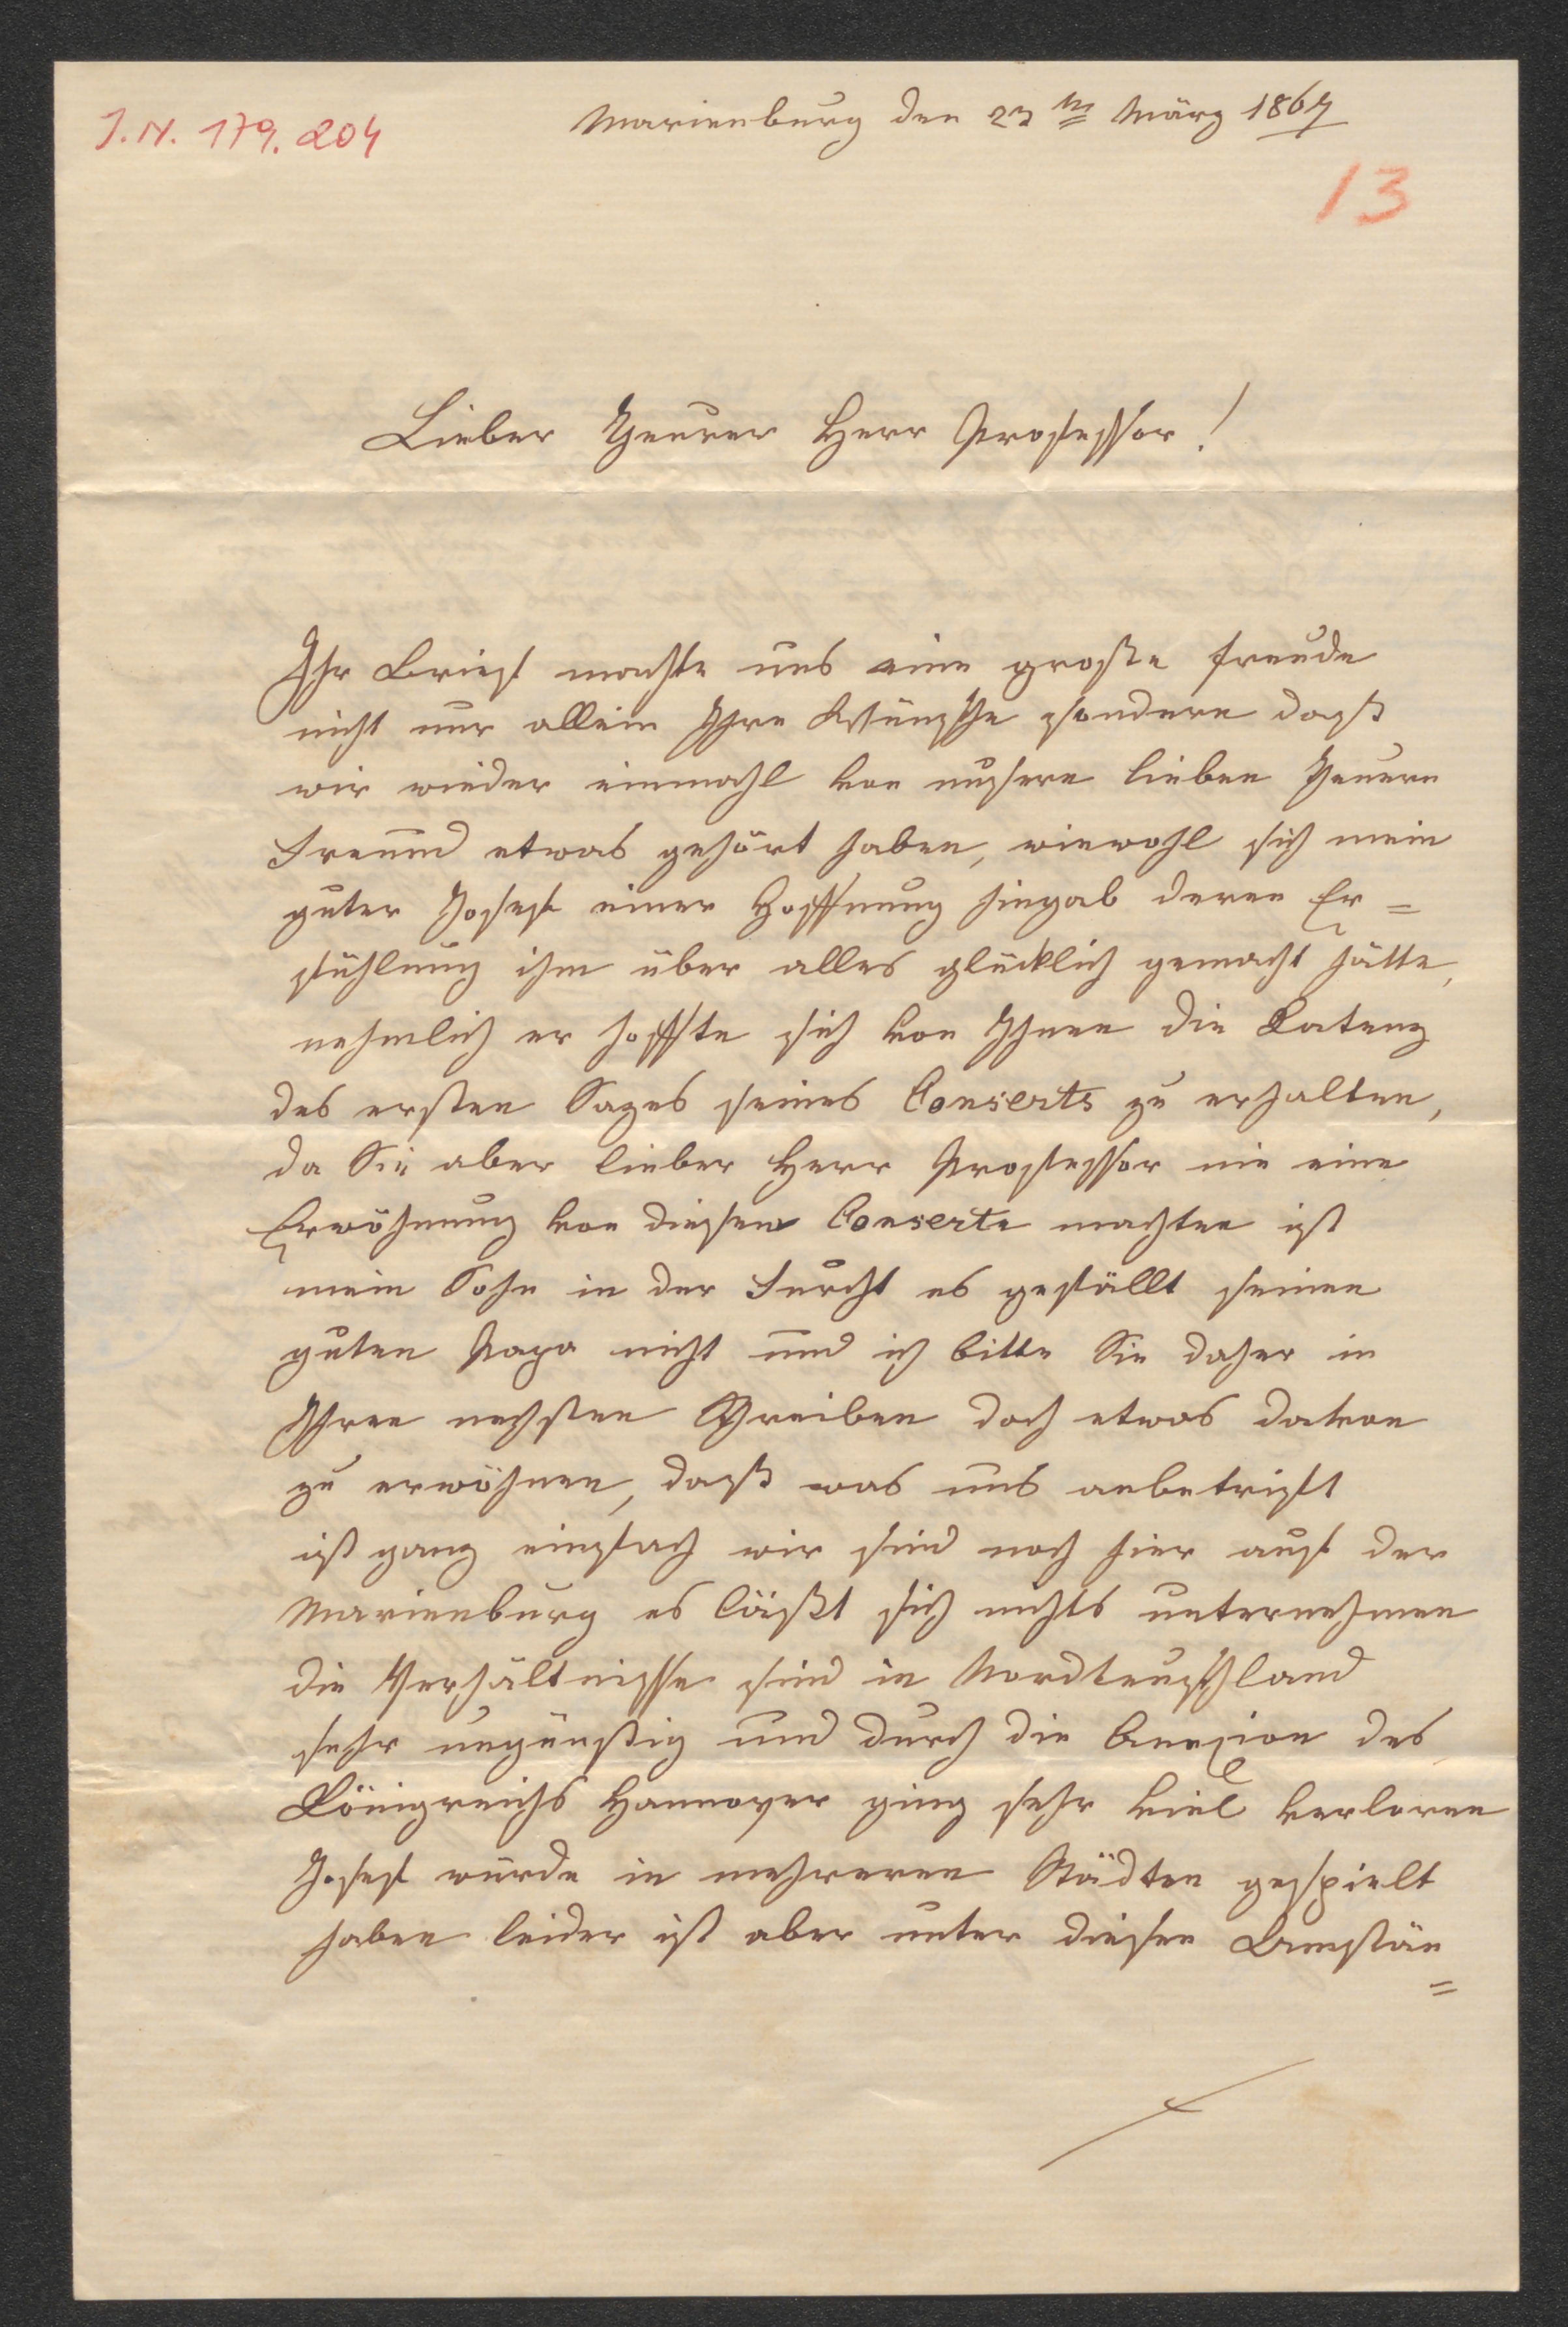 J.N. 179.204
Marienburg den 23ten März 1867
13
Lieber Theurer Herr Professor!
Ihr Brief machte uns eine große Freude
nicht nur allein Ihre Wünsche sondern daß
wir wieder einmahl von unsern lieben Theuern
Freund etwas gehört haben, wiewohl sich mein
guter Josef einer Hoffnung hingab deren Er=
fühlung ihm über alles glücklich gemacht hätte,
nehmlich er hoffte sich von Ihnen die Katenz
des ersten Sazes seines Conserts zu erhalten,
da Sie aber lieber Herr Professor nie eine
Erwöhnung von diesem Conserte machten ist
mein Sohn in der Furcht es gefällt seinen
guten Papa nicht und ich bitte Sie daher in
Ihren nechsten Schreiben doch etwas davon
zu erwöhnen, daß was uns anbetrift
ist ganz einfach wir sind noch hier auf der
Marienburg es läßt sich nichts unternehmen
die Verhältnisse sind in Nordteutschland
sehr ungünstig und durch die Anexion des
Königreichs Hannover ging sehr viel verloren
Josef würde in mehreren Städten gespielt
haben leider ist aber unter diesen Umstän
=